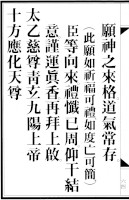 願神之來格道氣常存
(此願如祈福可禮如度亡可簡)
臣等向來禮懺已周仰干結
意謹運眞香再拜上啟
太乙慈尊青玄九陽上帝
十方應化天尊